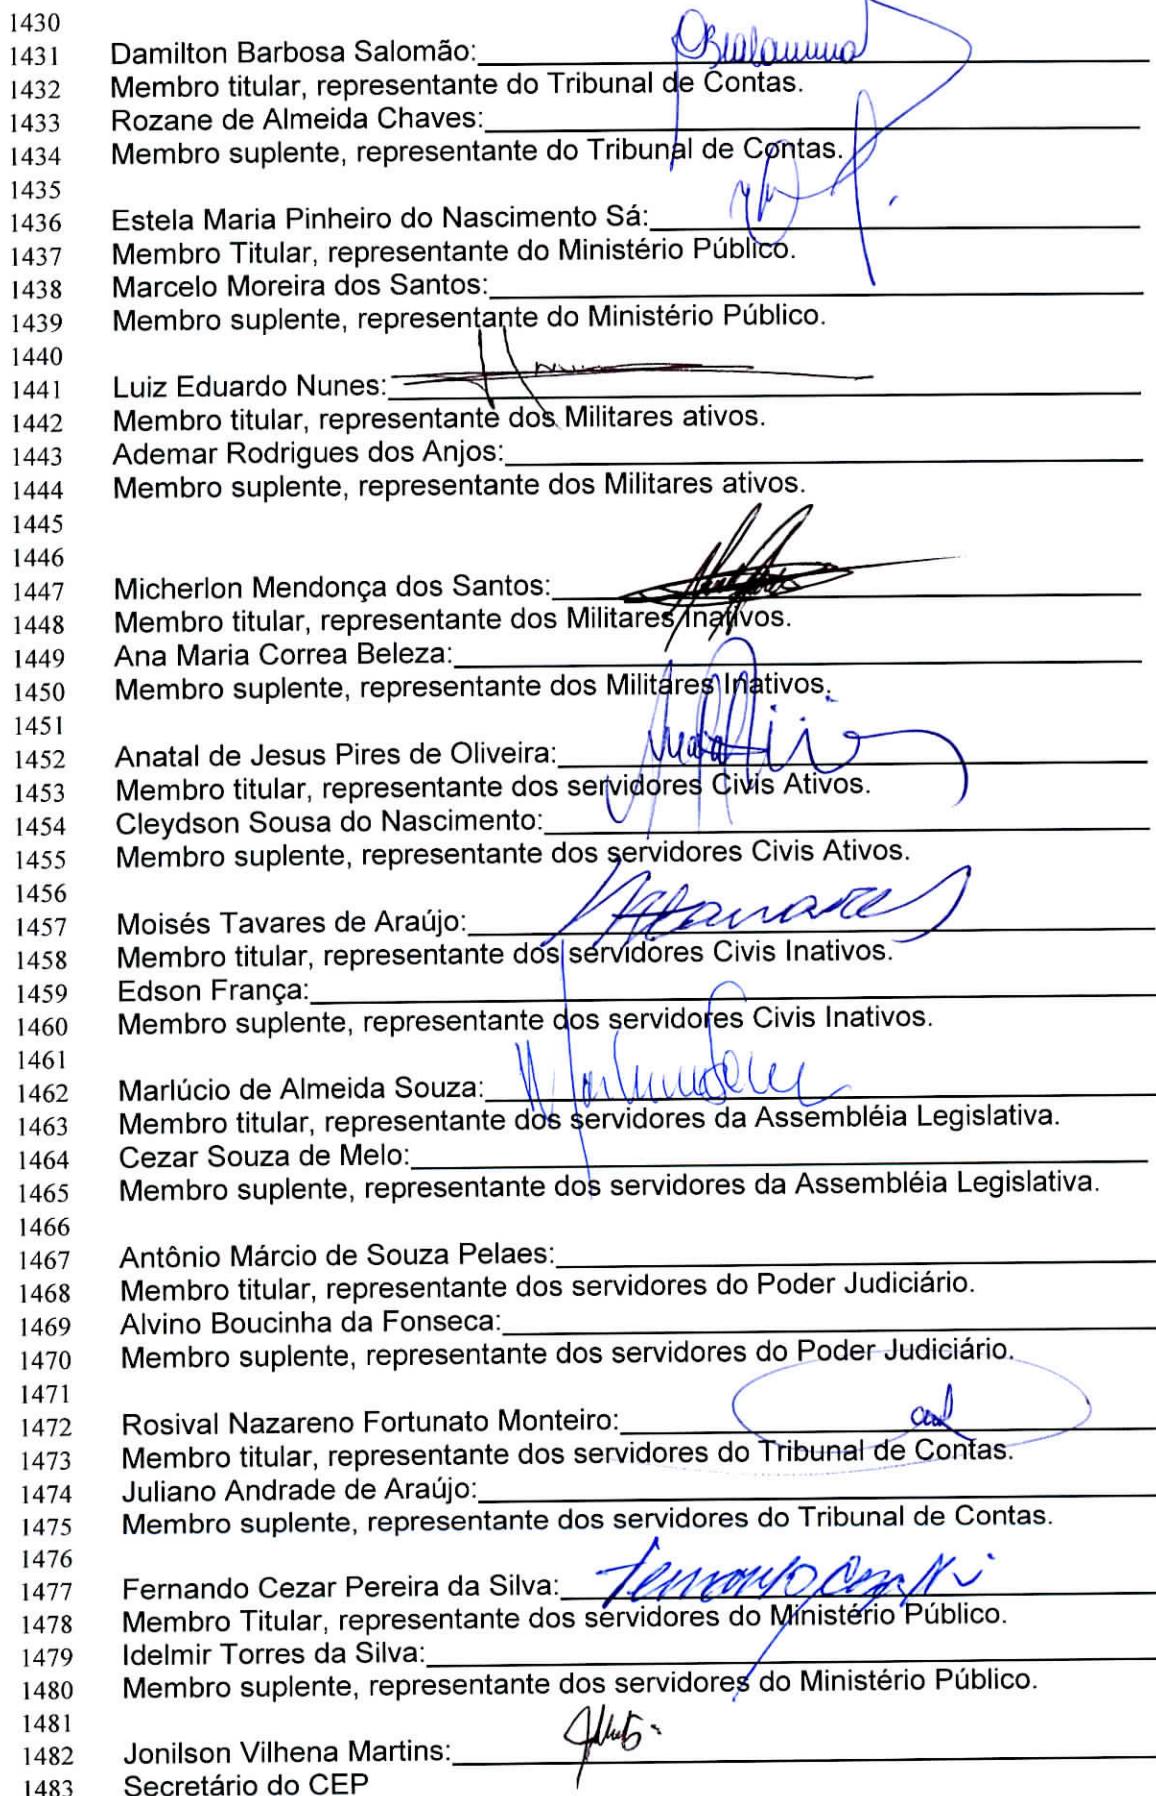 1430
1431 Damilton Barbosa Salomão:
1432 Membro titular, representante do Tribunal de Contas.
1433 Rozane de Almeida Chaves:
1434 Membro suplente, representante do Tribunal de Contas.
1435
1436 Estela Maria Pinheiro do Nascimento Sá:
1437 Membro Titular, representante do Ministério Público.
1438 Marcelo Moreira dos Santos:
1439 Membro suplente, representante do Ministério Público.
1440
1441 Luiz Eduardo Nunes:
1442 Membro titular, representante dos Militares ativos.
1443 Ademar Rodrigues dos Anjos:
1444 Membro suplente, representante dos Militares ativos.
1445
1446
1447 Micherlon Mendonça dos Santos:
1448 Membro titular, representante dos Militares Inativos.
1449 Ana Maria Correa Beleza:
1450 Membro suplente, representante dos Militares Inativos.
1451
1452 Anatal de Jesus Pires de Oliveira:
1453 Membro titular, representante dos servidores Civis Ativos.
1454 Cleydson Sousa do Nascimento:
1455 Membro suplente, representante dos servidores Civis Ativos.
1456
1457 Moisés Tavares de Araújo:
1458 Membro titular, representante dos servidores Civis Inativos.
1459 Edson França:
1460 Membro suplente, representante dos servidores Civis Inativos.
1461
1462 Marlúcio de Almeida Souza:
1463 Membro titular, representante dos servidores da Assembléia Legislativa.
1464 Cezar Souza de Melo:
1465 Membro suplente, representante dos servidores da Assembléia Legislativa.
1466
1467 Antônio Márcio de Souza Pelaes:
1468 Membro titular, representante dos servidores do Poder Judiciário.
1469 Alvino Boucinha da Fonseca:
1470 Membro suplente, representante dos servidores do Poder Judiciário.
1471
1472 Rosival Nazareno Fortunato Monteiro:
1473 Membro titular, representante dos servidores do Tribunal de Contas.
1474 Juliano Andrade de Araújo:
1475 Membro suplente, representante dos servidores do Tribunal de Contas.
1476
1477 Fernando Cezar Pereira da Silva:
1478 Membro Titular, representante dos servidores do Ministério Público.
1479 Idelmir Torres da Silva:
1480 Membro suplente, representante dos servidores do Ministério Público.
1481
1482 Jonilson Vilhena Martins:
1483 Secretário do CEP